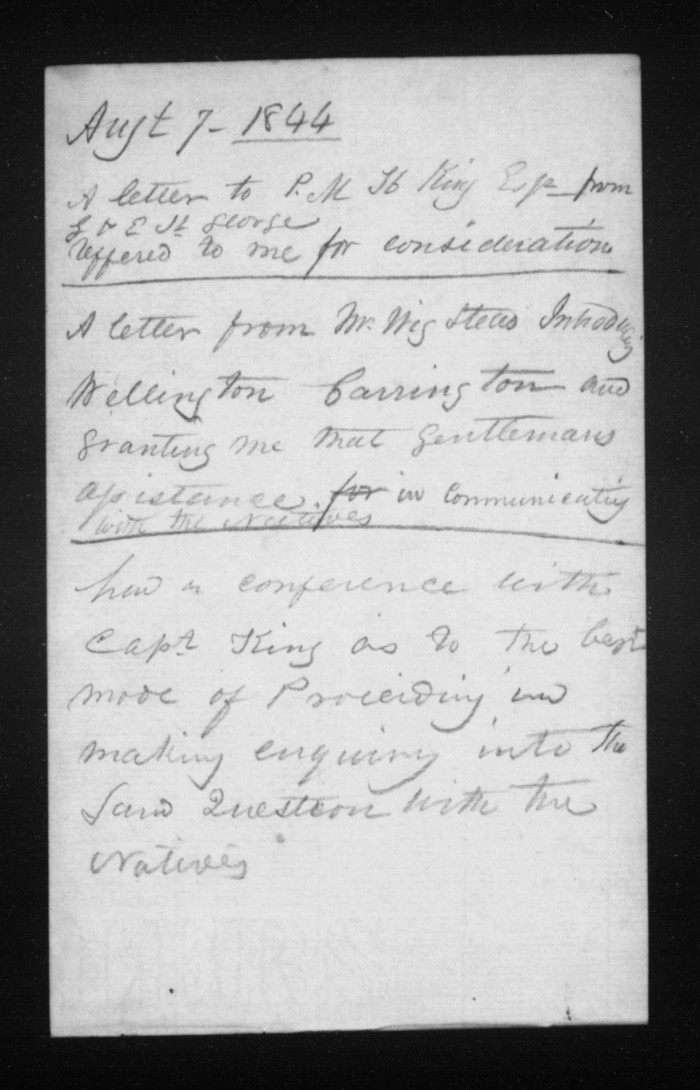 Augt 7 - 1844
A letter to P. M To King Esqr from
G & E St George
reffered to me for consideration
A letter from Mr. Wigsteed Introducing
Wellington Carrington and
granting me that gentlemans
assistance for in Communicating
with the Natives
had a conference with
Capt King as to the best
mode of Proceeding in
making enquiry into the
Land Question with the
Natives